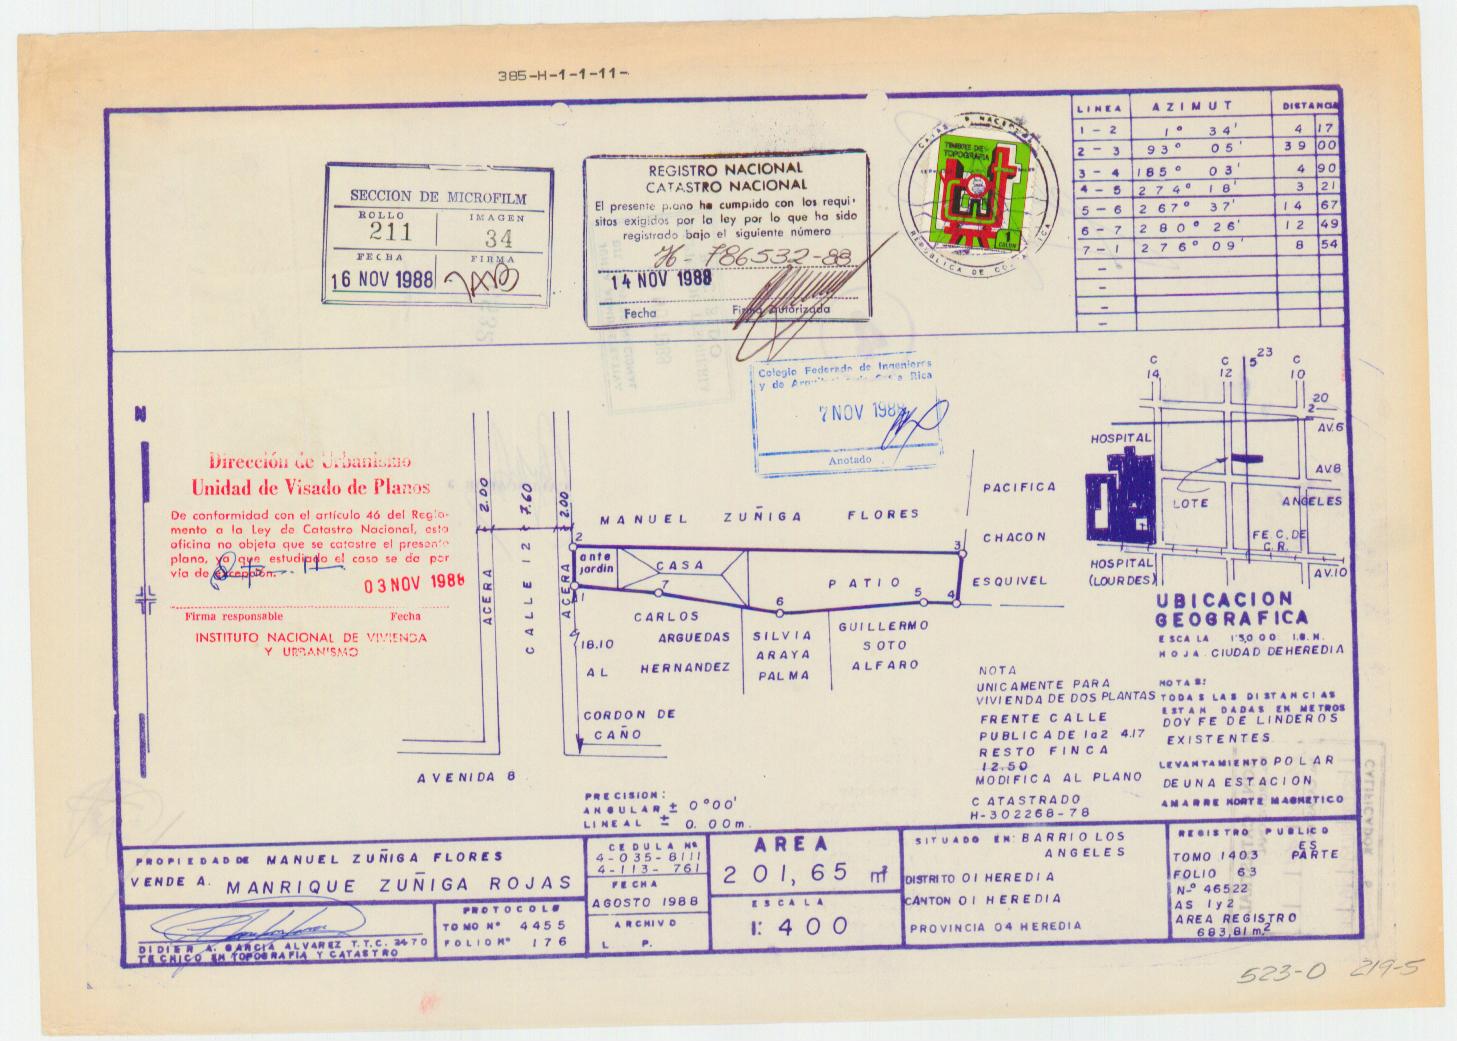 385-H-1-1-11-
SECCION DE MICROFILM
ROLLO IMAGEN
211 34
FECHA FIRMA
16 NOV 1988
REGISTRO NACIONAL
CATASTRO NACIONAL
El presente plano ha cumplido con los requi-
sitos exigidos por la ley por lo que ha sido
registrado bajo el siguiente número
H- 786532-88
14 NOV 1988
Fecha Firma Autorizada
TIMBRE DE
TOPOGRAFIA
1
COLON
REPUBLICA DE COSTA RICA
LINEA AZIMUT DISTANCIA
1 - 2 1° 34' 4 17
2 - 3 93° 05' 39 00
3 - 4 185° 03' 4 90
4 - 5 274° 18' 3 21
5 - 6 267° 37' 14 67
6 - 7 280° 26' 12 49
7 - 1 276° 09' 8 54
–
–
–
–
Colegio Federado de Ingenieros
y de Arquitectos de Costa Rica
7 NOV 1988
Anotado
N
Dirección de Urbanismo
Unidad de Visado de Planos
De conformidad con el artículo 46 del Regla-
mento a la Ley de Catastro Nacional, esta
oficina no objeta que se catastre el presente
plano, ya que estudiado el caso se da por
vía de excepción.
03 NOV 1988
Firma responsable Fecha
INSTITUTO NACIONAL DE VIVIENDA
Y URBANISMO
ACERA 2.00
CALLE 12 7.60
ACERA 2.00
MANUEL ZUÑIGA FLORES
2
3
ante
jardin
CASA
PATIO
1
7
6
5
4
PACIFICA
CHACON
ESQUIVEL
CARLOS
ARGUEDAS
HERNANDEZ
SILVIA
ARAYA
PALMA
GUILLERMO
SOTO
ALFARO
18.10
AL
CORDON DE
CAÑO
AVENIDA 8
C 14
C 12
5 23
C 10
20
2
AV.6
HOSPITAL
AV.8
LOTE
ANGELES
FE.C. DE
C.R.
HOSPITAL
(LOURDES)
AV.10
UBICACION
GEOGRAFICA
ESCALA 1:5,000 I.G.N.
HOJA CIUDAD DE HEREDIA
NOTA
UNICAMENTE PARA
VIVIENDA DE DOS PLANTAS
FRENTE CALLE
PUBLICA DE 1a2 4.17
RESTO FINCA
12.50
MODIFICA AL PLANO
CATASTRADO
H-302268-78
NOTAS:
TODAS LAS DISTANCIAS
ESTAN DADAS EN METROS
DOY FE DE LINDEROS
EXISTENTES
LEVANTAMIENTO POLAR
DE UNA ESTACION
AMARRE NORTE MAGNETICO
PRECISION:
ANGULAR ± 0°00'
LINEAL ± 0.00m.
PROPIEDAD DE MANUEL ZUÑIGA FLORES
VENDE A. MANRIQUE ZUÑIGA ROJAS
DIDIER A. GARCIA ALVAREZ T.T.C. 3470
TECNICO EN TOPOGRAFIA Y CATASTRO
PROTOCOLO
TOMO Nº 4455
FOLIO Nº 176
CEDULA Nº
4-035-8111
4-113-761
FECHA
AGOSTO 1988
ARCHIVO
L P.
AREA
201,65 m²
ESCALA
1: 400
SITUADO EN: BARRIO LOS
ANGELES
DISTRITO 01 HEREDIA
CANTON 01 HEREDIA
PROVINCIA 04 HEREDIA
REGISTRO PUBLICO
ES
PARTE
TOMO 1403
FOLIO 63
Nº 46522
AS 1 y 2
AREA REGISTRO
683,81 m²
523-0 219-5